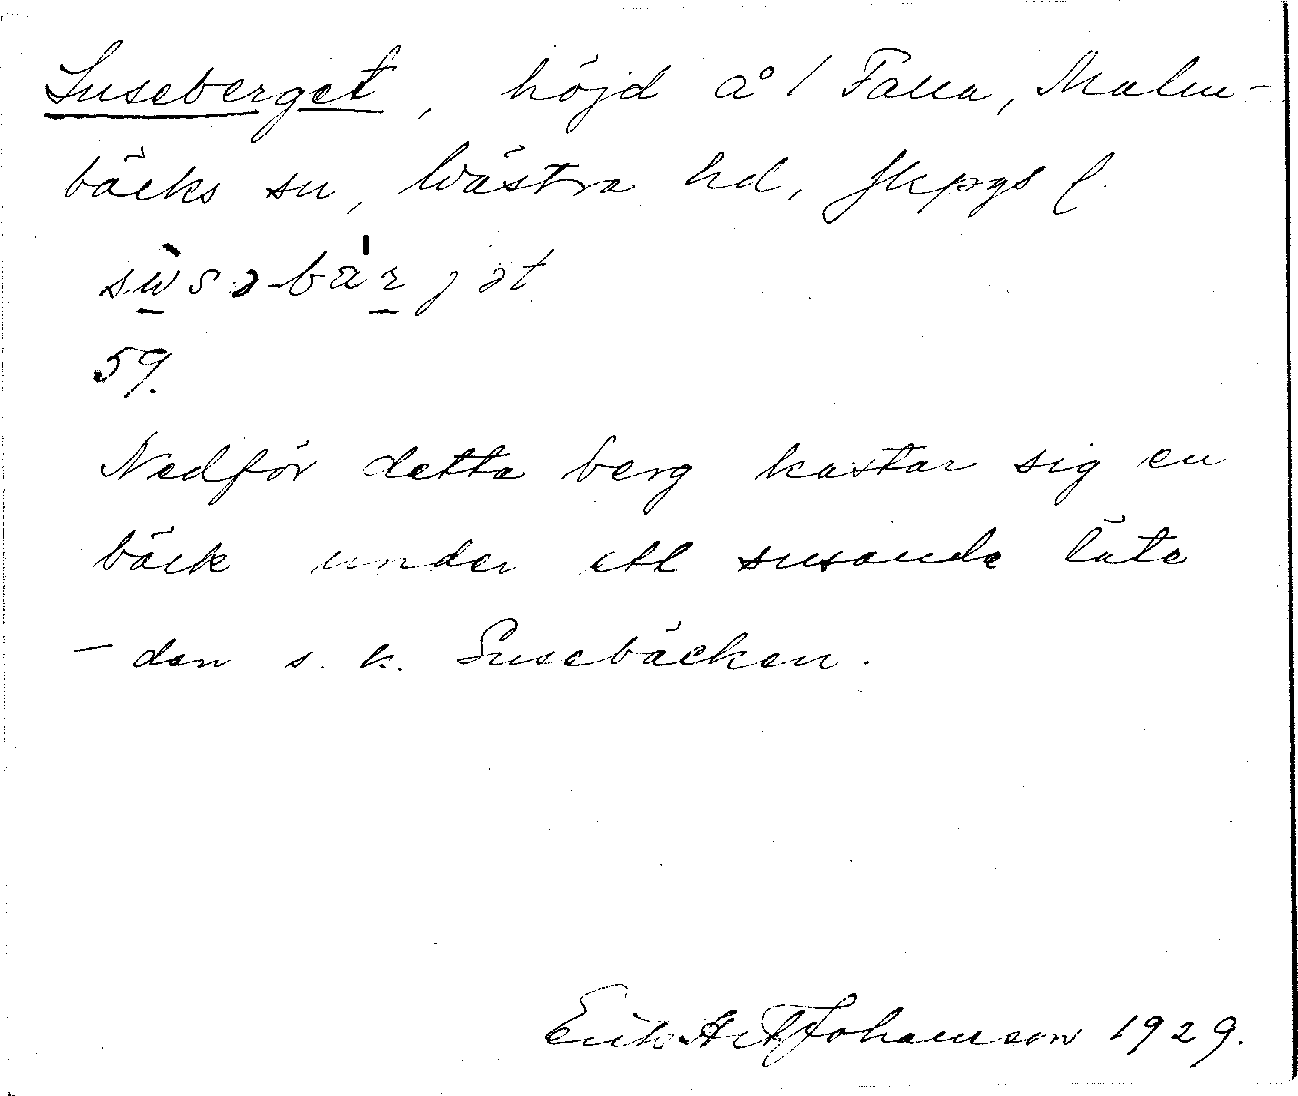 Suseberget, höjd å / Falla, Malm-
bäcks sn, Västra hd, Jkpgs l.
sùsə-bár jət
59.
Nedför detta berg kastar sig en
bäck under ett susande läte
- den s. k. Susebäcken.
Erik Johansson 1929.